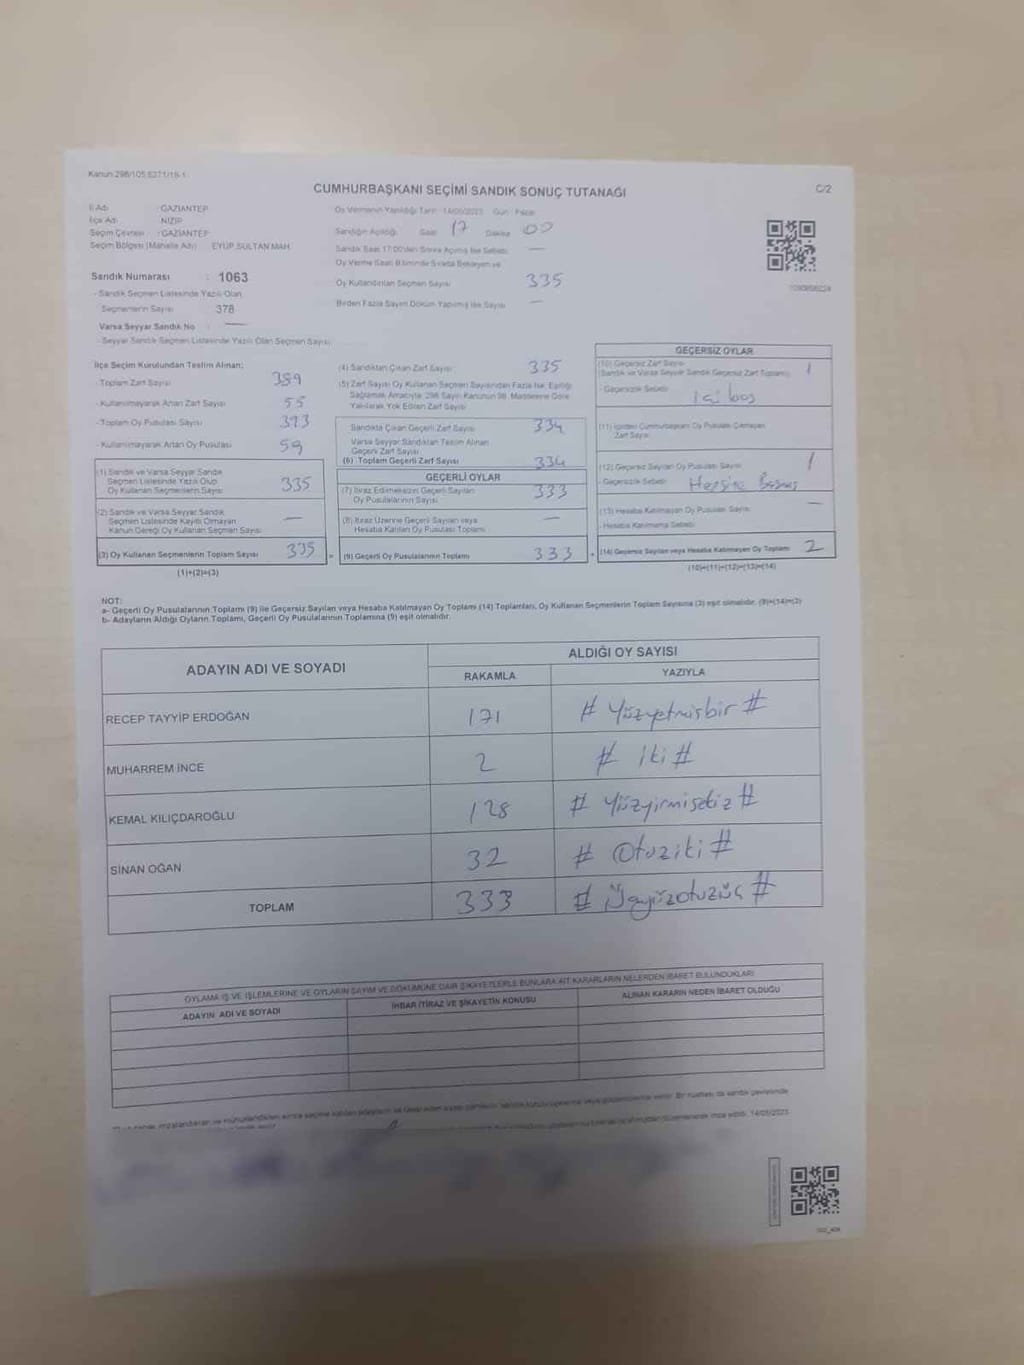 Kanun:298/105,6271/19-1
CUMHURBAŞKANI SEÇİMİ SANDIK SONUÇ TUTANAĞI
C/2
İl Adı : GAZİANTEP
İlçe Adı : NİZİP
Seçim Çevresi : GAZİANTEP
Seçim Bölgesi (Mahalle Adı) EYÜP SULTAN MAH.
Oy Vermenin Yapıldığı Tarih : 14/05/2023 Gün : Pazar
Sandığın Açıldığı Saat 17 Dakika 00
Sandık Saat 17:00'den Sonra Açılmış İse Sebebi —
Oy Verme Saati Bitiminde Sırada Bekleyen ve
Oy Kullandırılan Seçmen Sayısı 335
Birden Fazla Sayım Döküm Yapılmış İse Sayısı —
Sandık Numarası : 1063
- Sandık Seçmen Listesinde Yazılı Olan
Seçmenlerin Sayısı 378
Varsa Seyyar Sandık No : —
- Seyyar Sandık Seçmen Listesinde Yazılı Olan Seçmen Sayısı
İlçe Seçim Kurulundan Teslim Alınan;
- Toplam Zarf Sayısı 389
- Kullanılmayarak Artan Zarf Sayısı 55
- Toplam Oy Pusulası Sayısı 393
- Kullanılmayarak Artan Oy Pusulası 59
(1) Sandık ve Varsa Seyyar Sandık
Seçmen Listesinde Yazılı Olup
Oy Kullanan Seçmenlerin Sayısı 335
(2) Sandık ve Varsa Seyyar Sandık
Seçmen Listesinde Kayıtlı Olmayan
Kanun Gereği Oy Kullanan Seçmen Sayısı —
(3) Oy Kullanan Seçmenlerin Toplam Sayısı 335
(1)+(2)=(3)
(4) Sandıktan Çıkan Zarf Sayısı 335
(5) Zarf Sayısı Oy Kullanan Seçmen Sayısından Fazla İse, Eşitliği
Sağlamak Amacıyla 298 Sayılı Kanunun 98. Maddesine Göre
Yakılarak Yok Edilen Zarf Sayısı
Sandıkta Çıkan Geçerli Zarf Sayısı 334
Varsa Seyyar Sandıktan Teslim Alınan
Geçerli Zarf Sayısı
(6) Toplam Geçerli Zarf Sayısı 334
GEÇERLİ OYLAR
(7) İtiraz Edilmeksizin Geçerli Sayılan
Oy Pusulalarının Sayısı 333
(8) İtiraz Üzerine Geçerli Sayılan veya
Hesaba Katılan Oy Pusulası Toplamı —
= (9) Geçerli Oy Pusulalarının Toplamı 333
GEÇERSİZ OYLAR
(10) Geçersiz Zarf Sayısı
(Sandık ve Varsa Seyyar Sandık Geçersiz Zarf Toplamı) 1
- Geçersizlik Sebebi İçi boş
(11) İçinden Cumhurbaşkanı Oy Pusulası Çıkmayan
Zarf Sayısı
(12) Geçersiz Sayılan Oy Pusulası Sayısı 1
- Geçersizlik Sebebi
(13) Hesaba Katılmayan Oy Pusulası Sayısı —
- Hesaba Katılmama Sebebi
+ (14) Geçersiz Sayılan veya Hesaba Katılmayan Oy Toplamı 2
(10)+(11)+(12)+(13)=(14)
NOT:
a- Geçerli Oy Pusulalarının Toplamı (9) ile Geçersiz Sayılan veya Hesaba Katılmayan Oy Toplamı (14) Toplamları, Oy Kullanan Seçmenlerin Toplam Sayısına (3) eşit olmalıdır. (9)+(14)=(3)
b- Adayların Aldığı Oyların Toplamı, Geçerli Oy Pusulalarının Toplamına (9) eşit olmalıdır.
ADAYIN ADI VE SOYADI
ALDIĞI OY SAYISI
RAKAMLA YAZIYLA
RECEP TAYYİP ERDOĞAN 171 # Yüzyetmişbir #
MUHARREM İNCE 2 # İki #
KEMAL KILIÇDAROĞLU 128 # Yüzyirmisekiz #
SİNAN OĞAN 32 # Otuziki #
TOPLAM 333 # Üçyüzotuzüç #
OYLAMA İŞ VE İŞLEMLERİNE VE OYLARIN SAYIM VE DÖKÜMÜNE DAİR ŞİKAYETLERLE BUNLARA AİT KARARLARIN NELERDEN İBARET BULUNDUKLARI
ADAYIN ADI VE SOYADI
İHBAR İTİRAZ VE ŞİKAYETİN KONUSU
ALINAN KARARIN NEDEN İBARET OLDUĞU